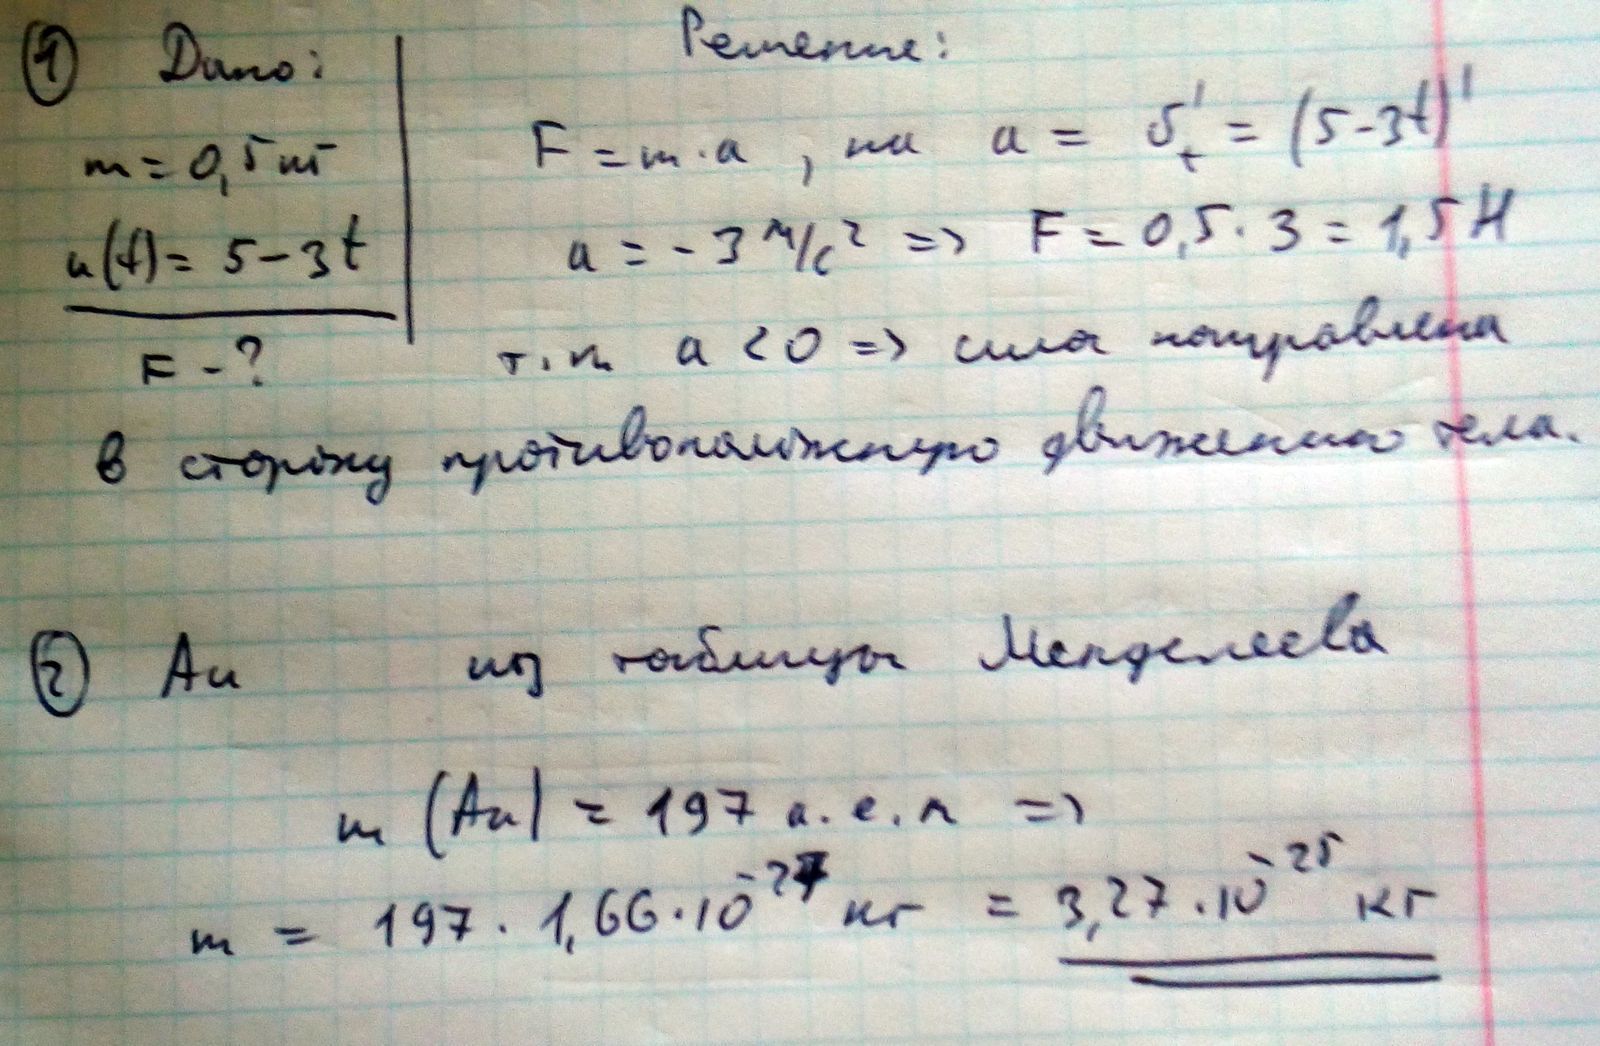 ① Дано:
Решение:
m = 0,5 кг
F = m·a, но a = υ'ₜ = (5-3t)'
u(t) = 5-3t
a = -3 м/с² => F = 0,5·3 = 1,5 Н
F - ?
т.к a < 0 => сила направлена
в сторону противоположную движению тела.
② Au из таблицы Менделеева
m (Au) = 197 а.е.м =>
m = 197 · 1,66·10⁻²⁷ кг = 3,27·10⁻²⁵ кг